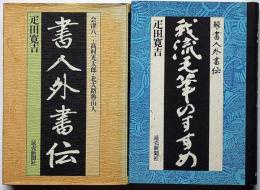 会津八一・高村光太郎・北大路魯山人
疋田寛吉
書人外書伝
読売新聞社
続 書人外書伝
我流毛筆のすすめ
疋田寛吉
読売新聞社